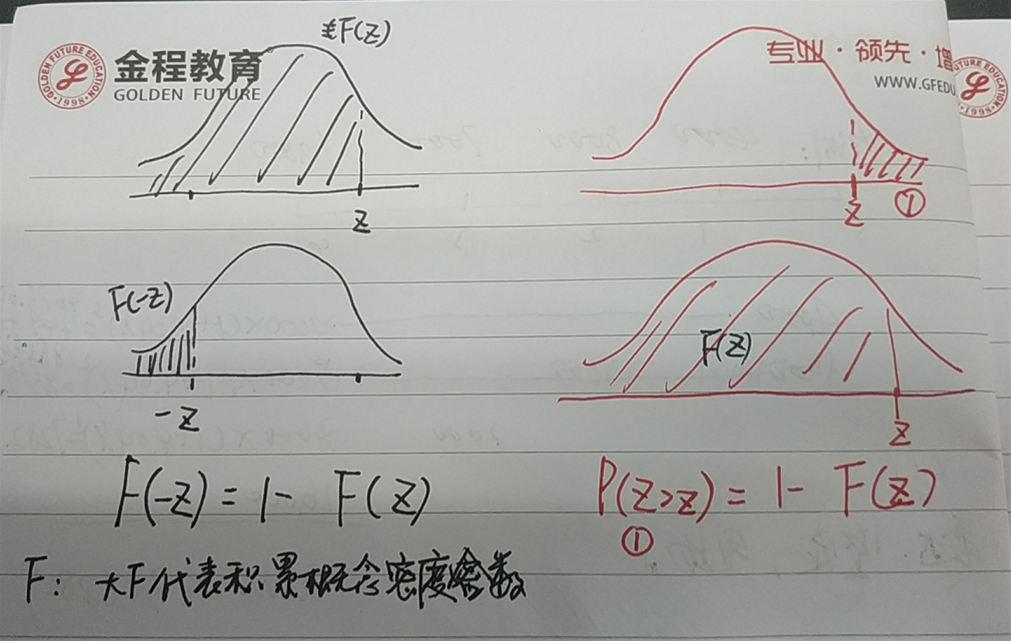 金程教育
GOLDEN FUTURE
GOLDEN FUTURE EDUCATION
·1998·
F(z)
专业·领先·增
WWW.GFEDU
z
z
①
F(-z)
-z
F(z)
z
F(-z) = 1 - F(z)
P(Z>z) = 1 - F(z)
①
F: 大F代表积累概念密度函数